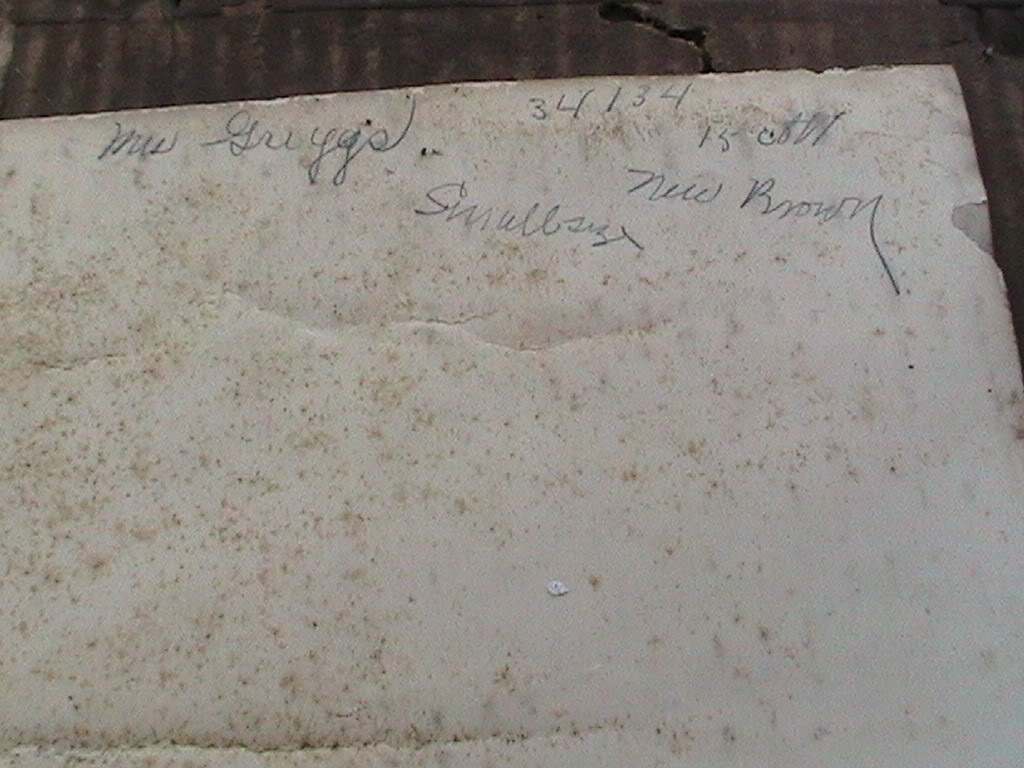 Mrs Griggs 34134
15
Small size New Brown